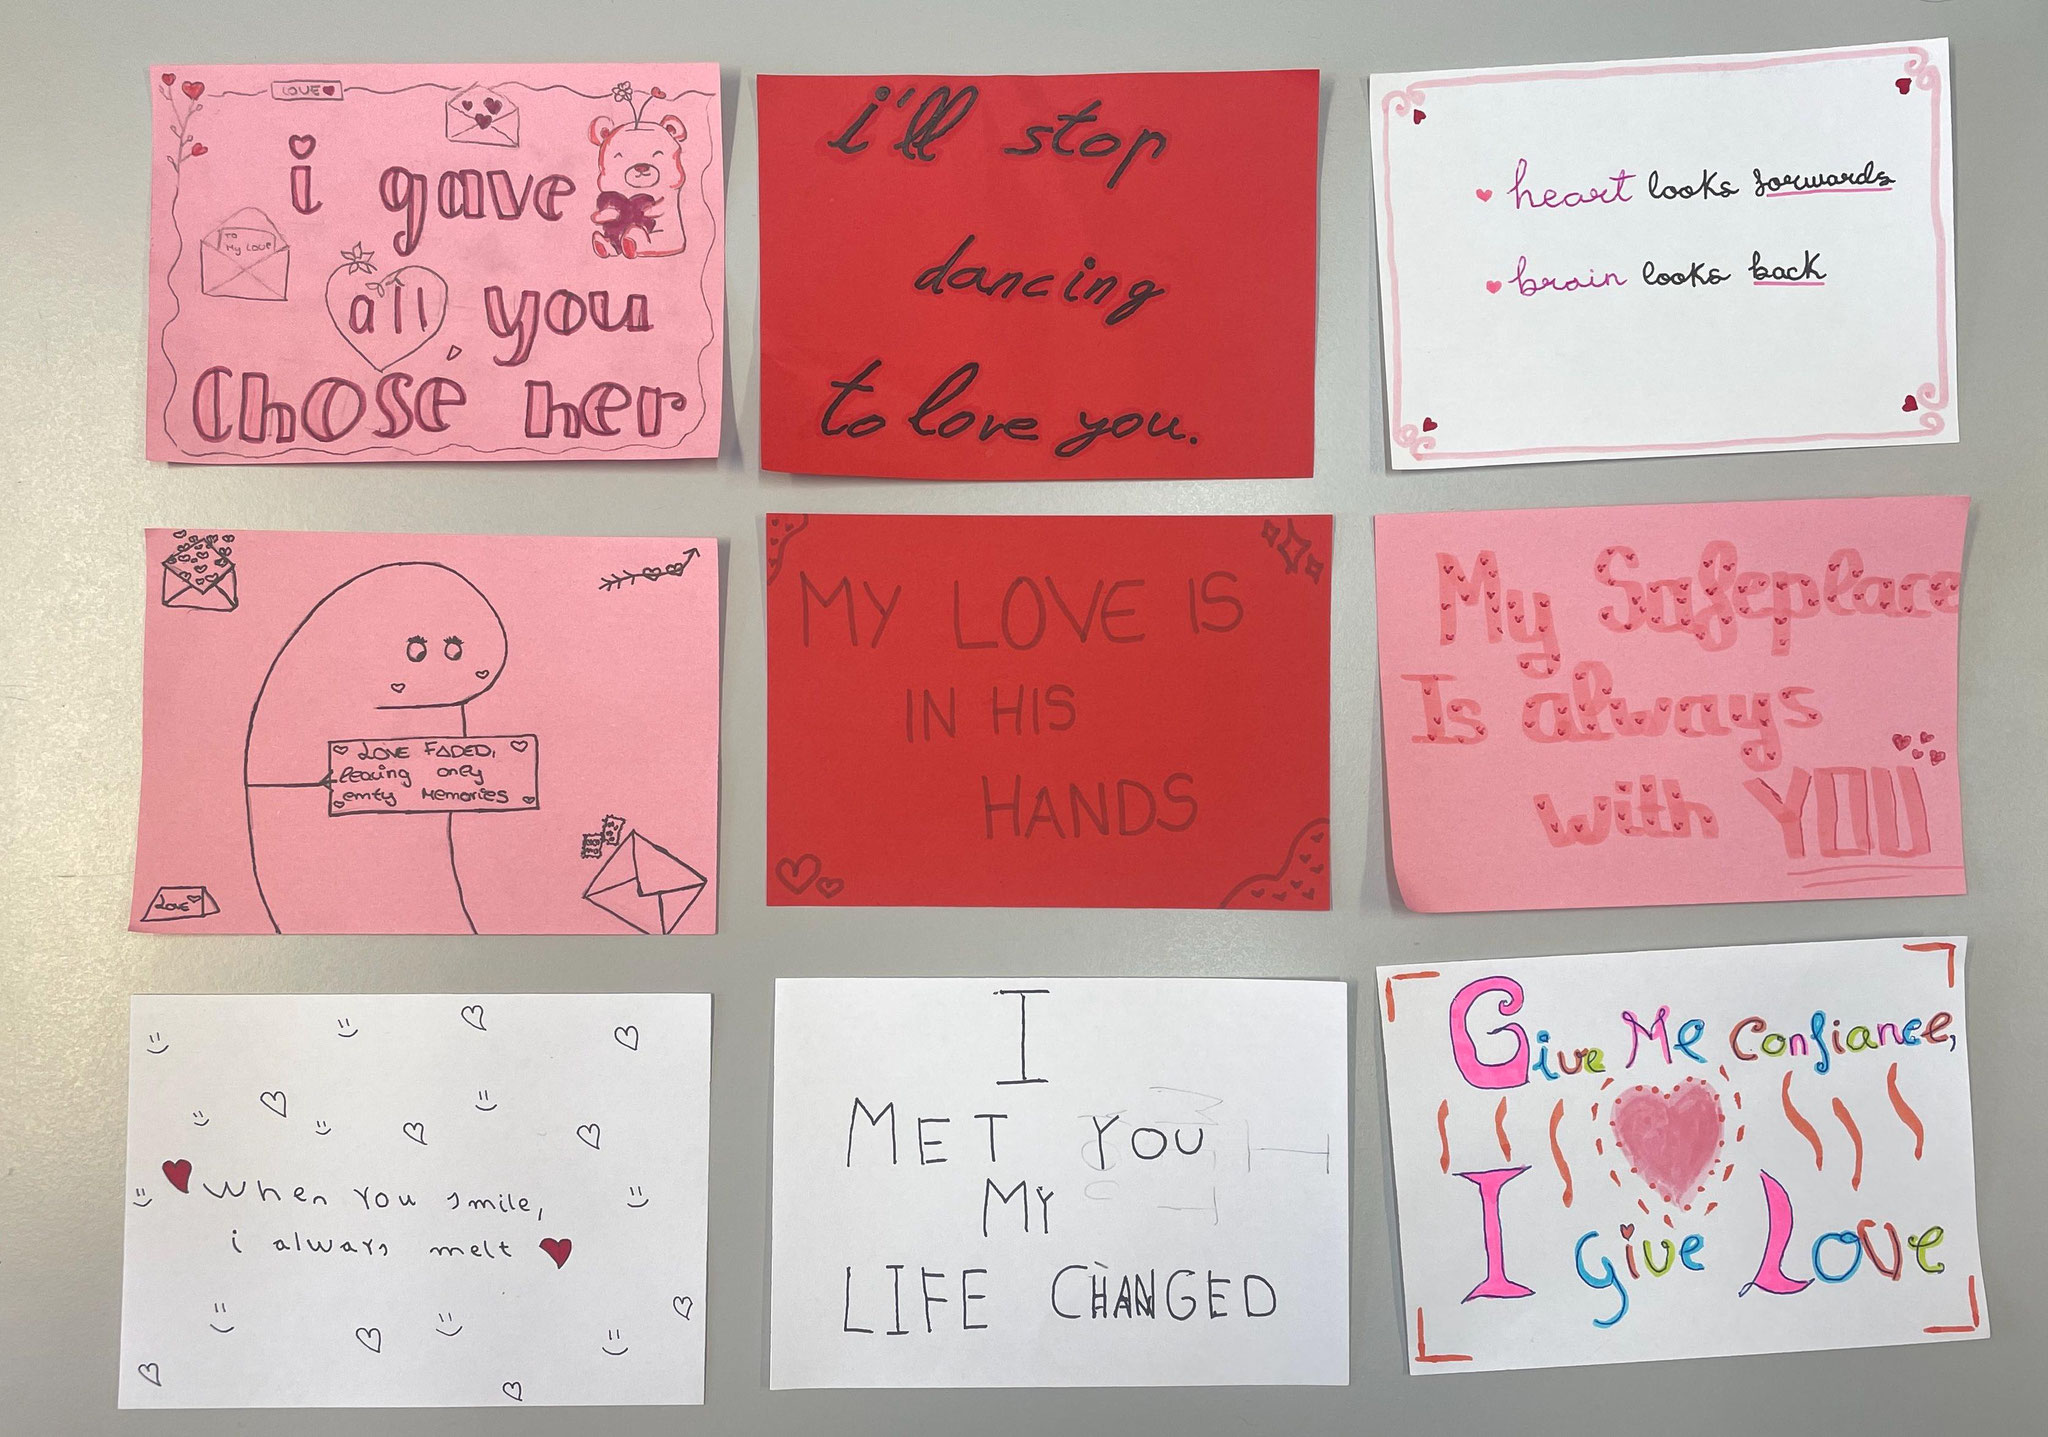 LOVE
i gave
TO
My Love
all, you
chose her
i'll stop
dancing
to love you.
heart looks forwards
brain looks back
LOVE FADED,
leaving only
emty MEMORIES
LOVE
MY LOVE IS
IN HIS
HANDS
My Safeplace
Is always
with YOU
When you smile,
i always melt
I
MET YOU
MY
LIFE CHANGED
Give Me Confiance,
I give Love